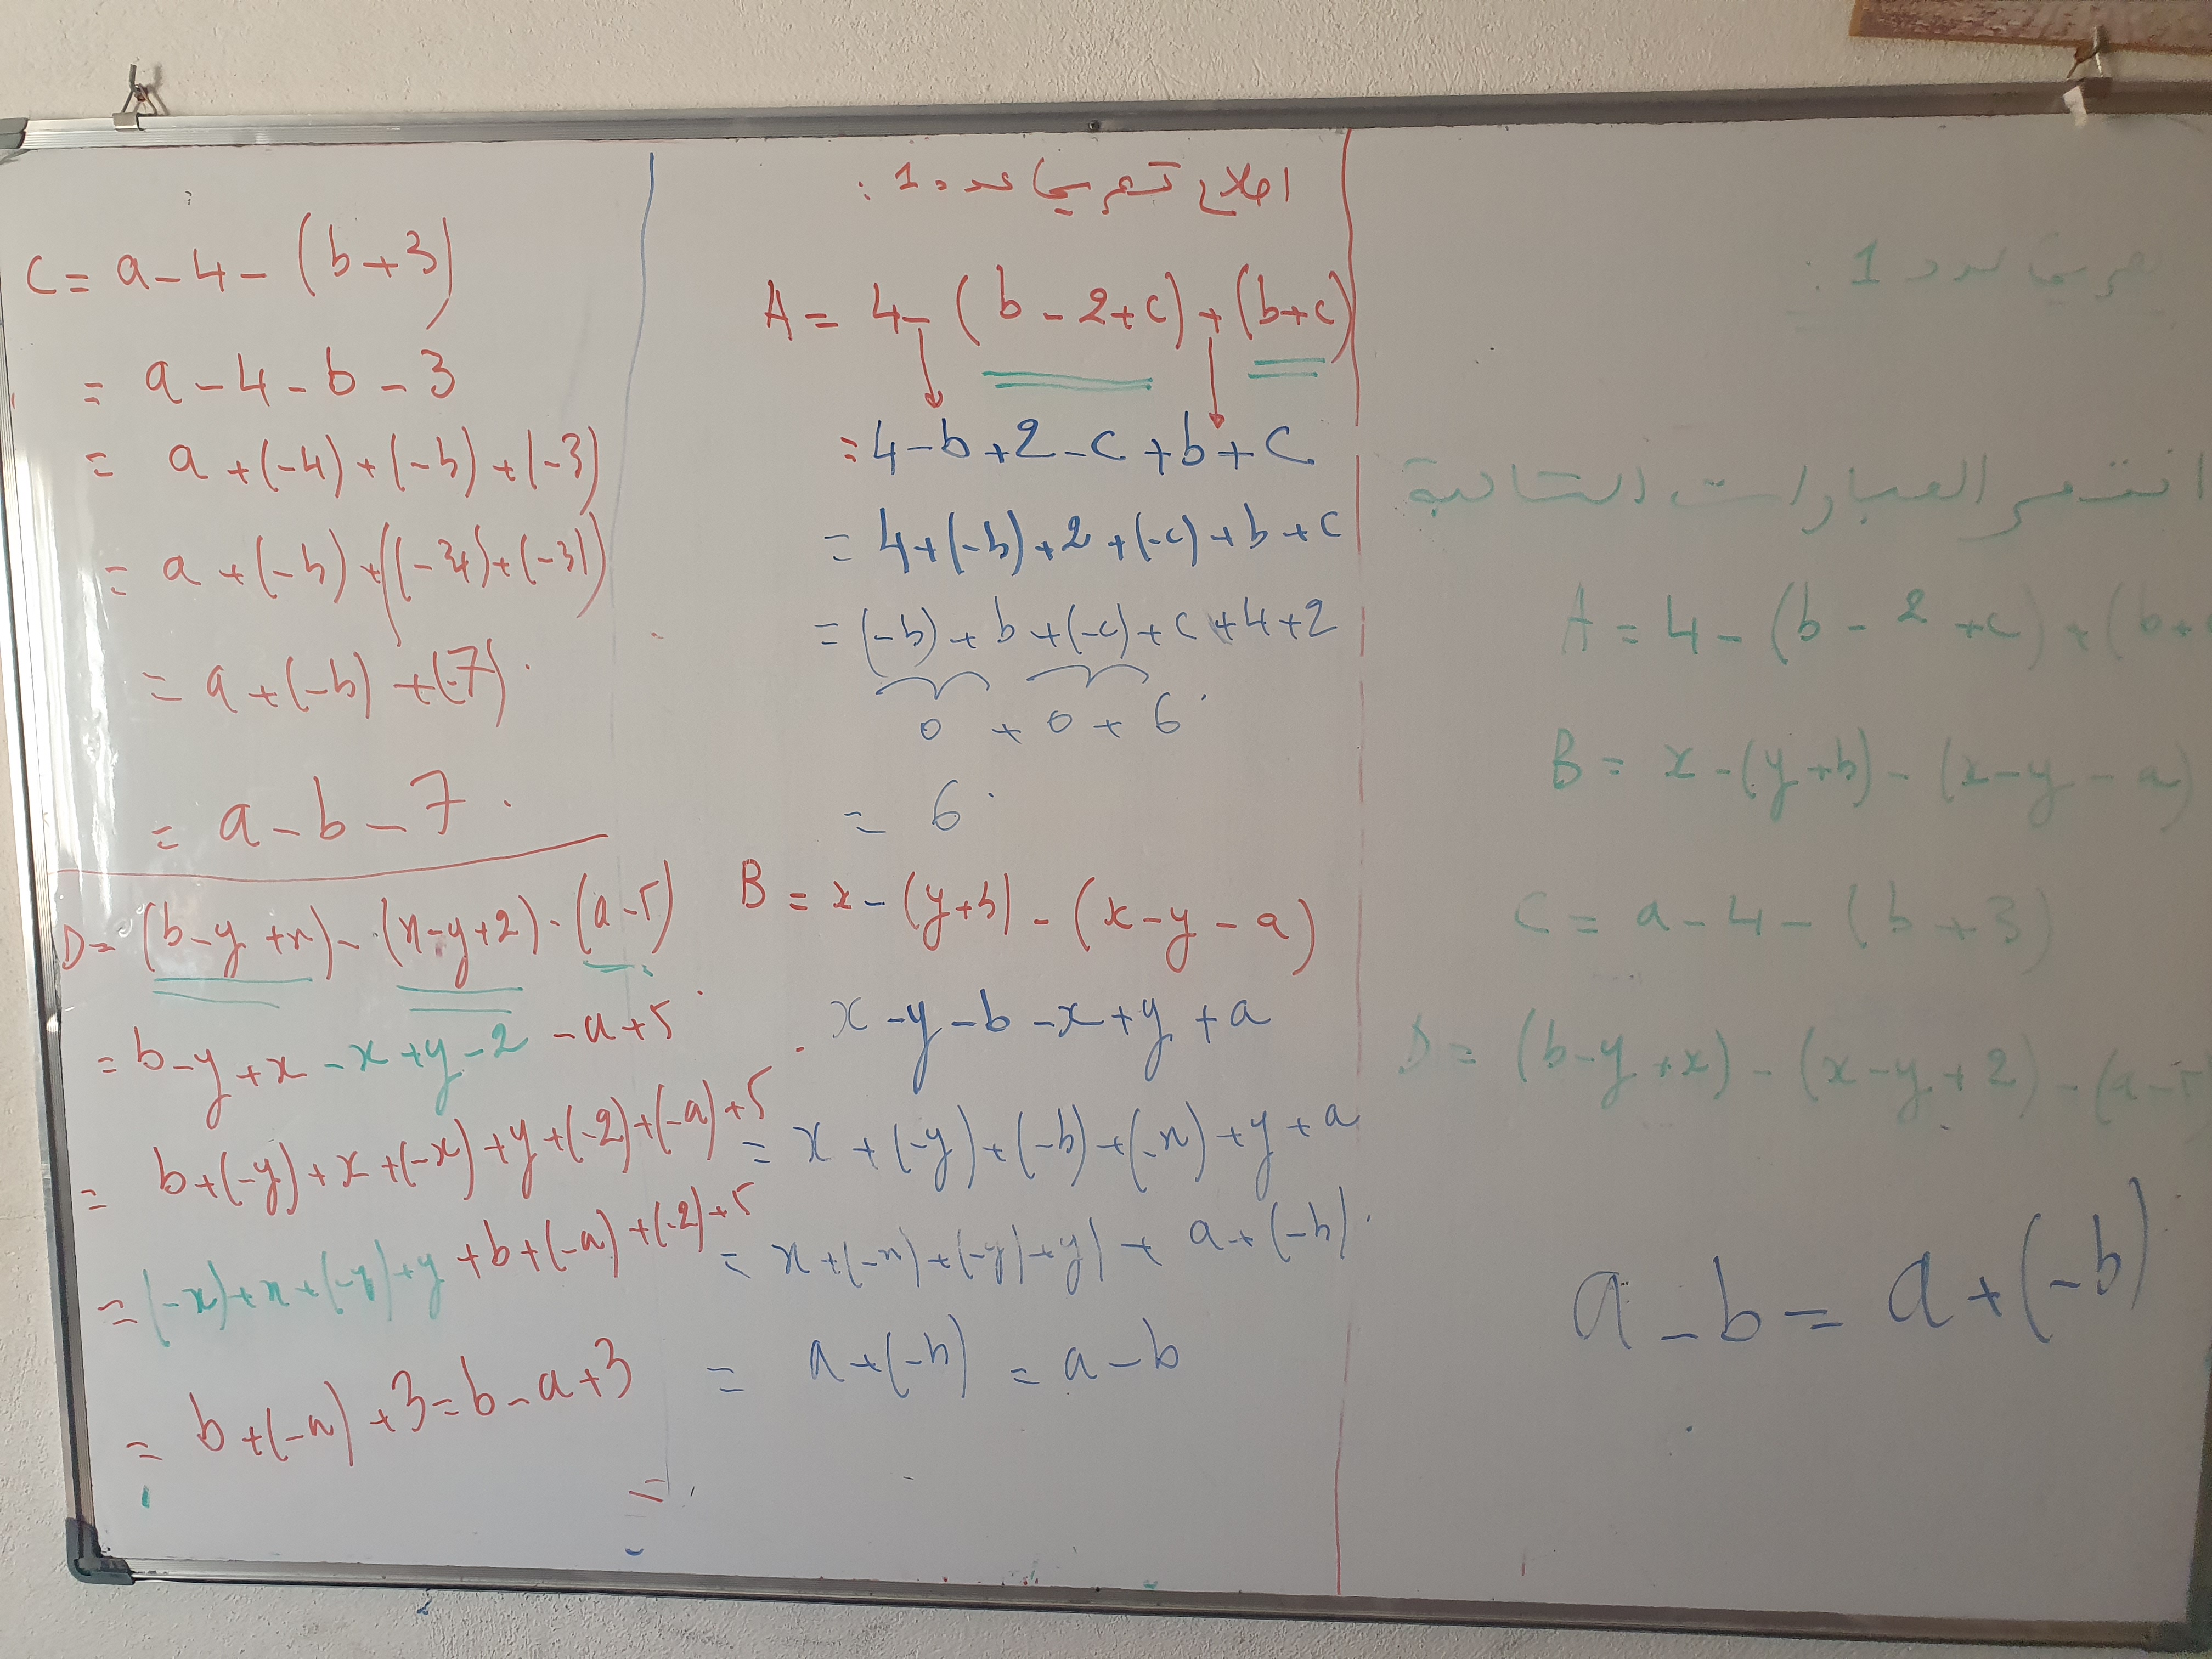 تمرين عدد 1 :
اختصر العبارات التالية
A = 4 - (b - 2 + c) + (b + c
B = x - (y + b) - (x - y - a)
C = a - 4 - (b + 3)
D = (b - y + x) - (x - y + 2) - (a - 5)
a - b = a + (-b)
اصلاح تمرين عدد 1 :
A = 4 - (b - 2 + c) + (b + c)
= 4 - b + 2 - c + b + c
= 4 + (-b) + 2 + (-c) + b + c
= (-b) + b + (-c) + c + 4 + 2
0 + 0 + 6
= 6
B = x - (y + b) - (x - y - a)
x - y - b - x + y + a
= x + (-y) + (-b) + (-x) + y + a
= x + (-x) + (-y) + y) + a + (-b)
= a + (-b) = a - b
C = a - 4 - (b + 3)
= a - 4 - b - 3
= a + (-4) + (-b) + (-3)
= a + (-b) + ((-34) + (-3))
= a + (-b) + (-7)
= a - b - 7
D = (b - y + x) - (x - y + 2) - (a - 5)
= b - y + x - x + y - 2 - a + 5
= b + (-y) + x + (-x) + y + (-2) + (-a) + 5
= (-x) + x + (-y) + y + b + (-a) + (-2) + 5
= b + (-a) + 3 = b - a + 3
=